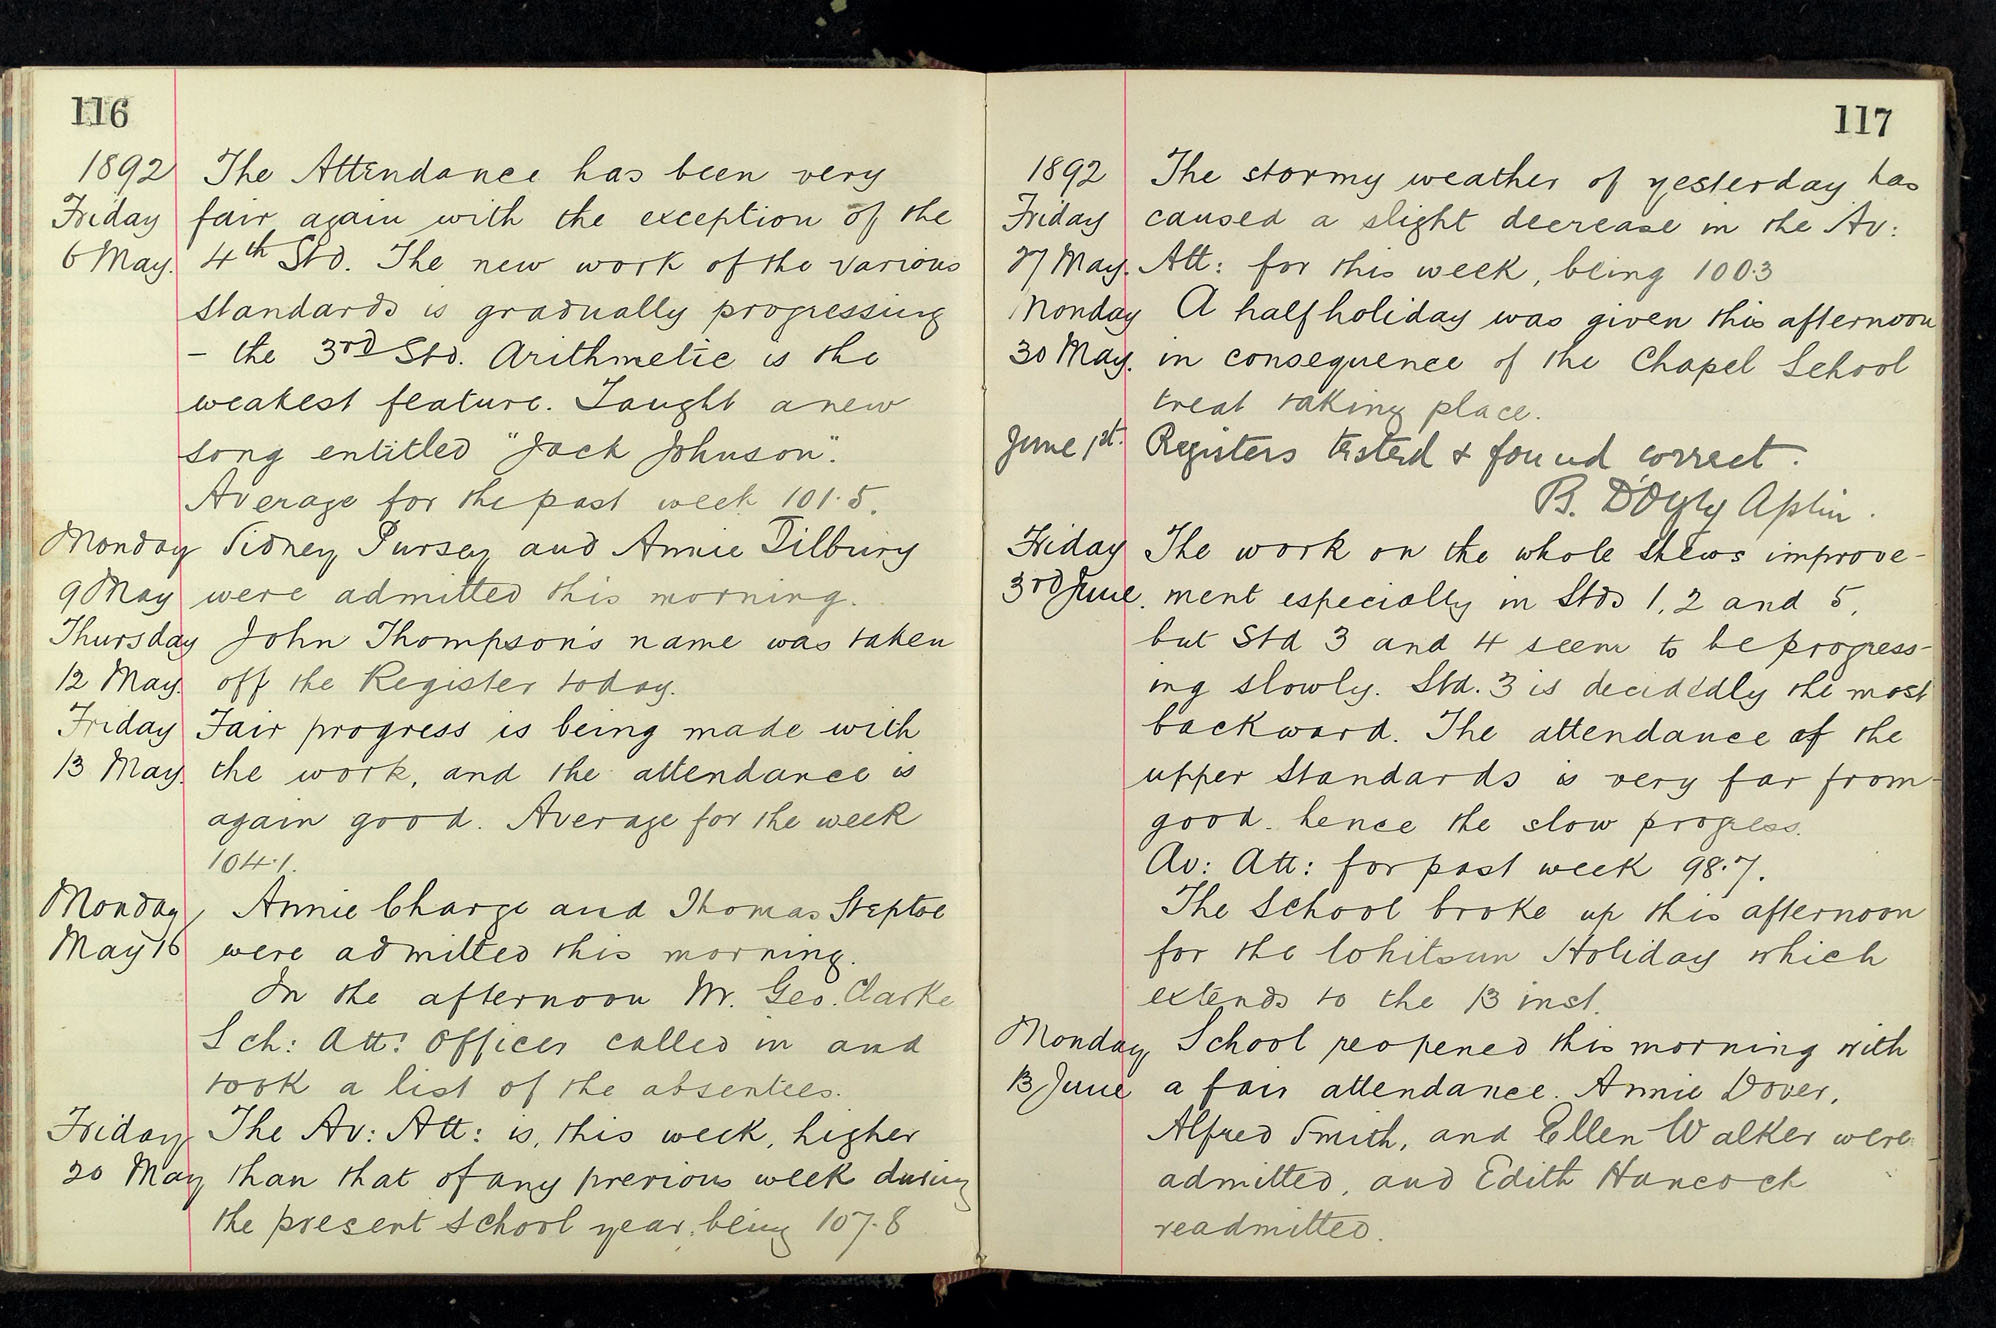 116
1892 The Attendance has been very
Friday fair again with the exception of the
6 May. 4th Std. The new work of the various
standards is gradually progressing
- the 3rd Std. Arithmetic is the
weakest feature. Taught a new
song entitled "Jack Johnson".
Average for the past week 101.5.
Monday Sidney Pursey and Annie Tilbury
9 May were admitted this morning.
Thursday John Thompson's name was taken
12 May. off the Register today.
Friday Fair progress is being made with
13 May. the work, and the attendance is
again good. Average for the week
104.1.
Monday Annie Charge and Thomas Steptoe
May 16 were admitted this morning.
In the afternoon Mr. Geo. Clarke
Sch: Att: Officer called in and
took a list of the absentees.
Friday The Av: Att: is, this week, higher
20 May than that of any previous week during
the present School year, being 107.8
117
1892 The stormy weather of yesterday has
Friday caused a slight decrease in the Av:
27 May. Att: for this week, being 100.3
Monday A half holiday was given this afternoon
30 May. in consequence of the Chapel School
treat taking place.
June 1st. Registers tested & found correct.
B. D'Oyly Aplin.
Friday The work on the whole shews improve-
3rd June. ment especially in Stds 1, 2 and 5,
but Std 3 and 4 seem to be progress-
ing slowly. Std. 3 is decidedly the most
backward. The attendance of the
upper Standards is very far from
good hence the slow progress.
Av: Att: for past week 98.7.
The School broke up this afternoon
for the Whitsun Holiday which
extends to the 13 inst.
Monday School reopened this morning with
13 June a fair attendance. Annie Dover,
Alfred Smith, and Ellen Walker were
admitted, and Edith Hancock
readmitted.